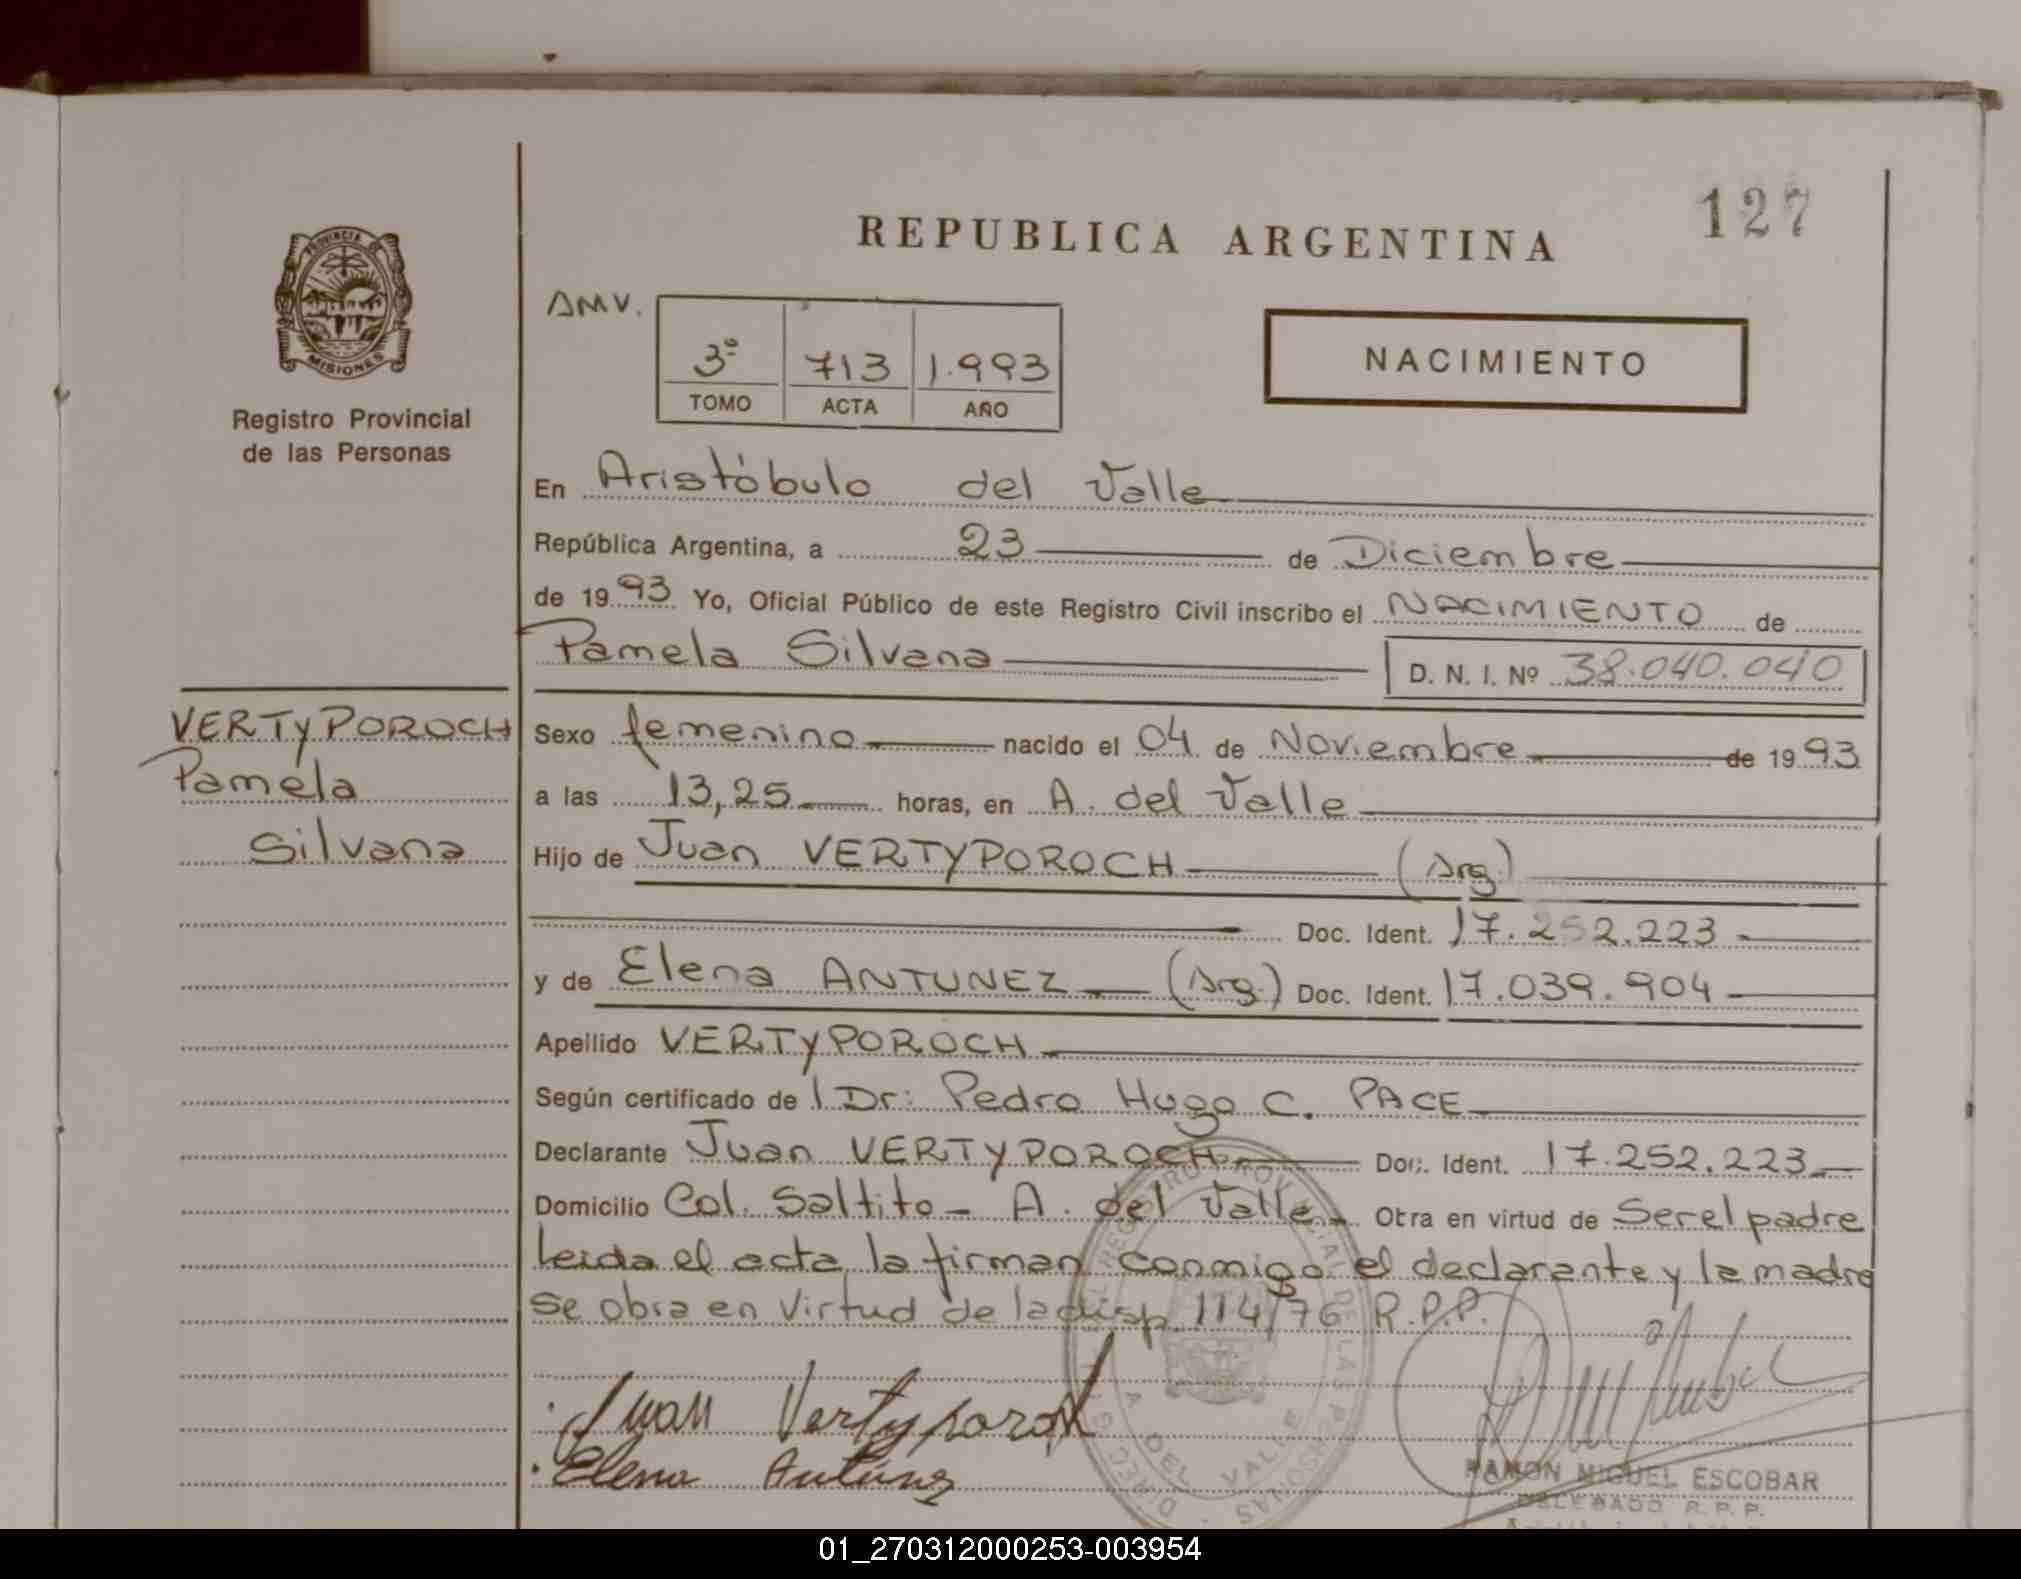 127
REPUBLICA ARGENTINA
PROVINCIA DE
MISIONES
Registro Provincial
de las Personas
AMV.
3º 713 1.993
TOMO ACTA AÑO
NACIMIENTO
En Aristóbulo del Valle
República Argentina, a 23 de Diciembre
de 1993 Yo, Oficial Público de este Registro Civil inscribo el NACIMIENTO de
Pamela Silvana D. N. I. Nº 38.040.040
VERTYPOROCH
Pamela
Silvana
Sexo femenino nacido el 04 de Noviembre de 1993
a las 13,25 horas, en A. del Valle
Hijo de Juan VERTYPOROCH (Arg.)
Doc. Ident. 17.252.223
y de Elena ANTUNEZ (Arg.) Doc. Ident. 17.039.904
Apellido VERTYPOROCH
Según certificado de l Dr: Pedro Hugo C. PACE
Declarante Juan VERTYPOROCH Doc. Ident. 17.252.223
Domicilio Col. Saltito - A. del Valle Otra en virtud de Ser el padre
leida el acta la firman conmigo el declarante y la madre
se obra en virtud de la disp. 114/76 R.P.P.
Juan Vertyporoch
Elena Antúnez
A. DEL VALLE
RAMON MIGUEL ESCOBAR
DELEGADO R. P. P.
01_270312000253-003954